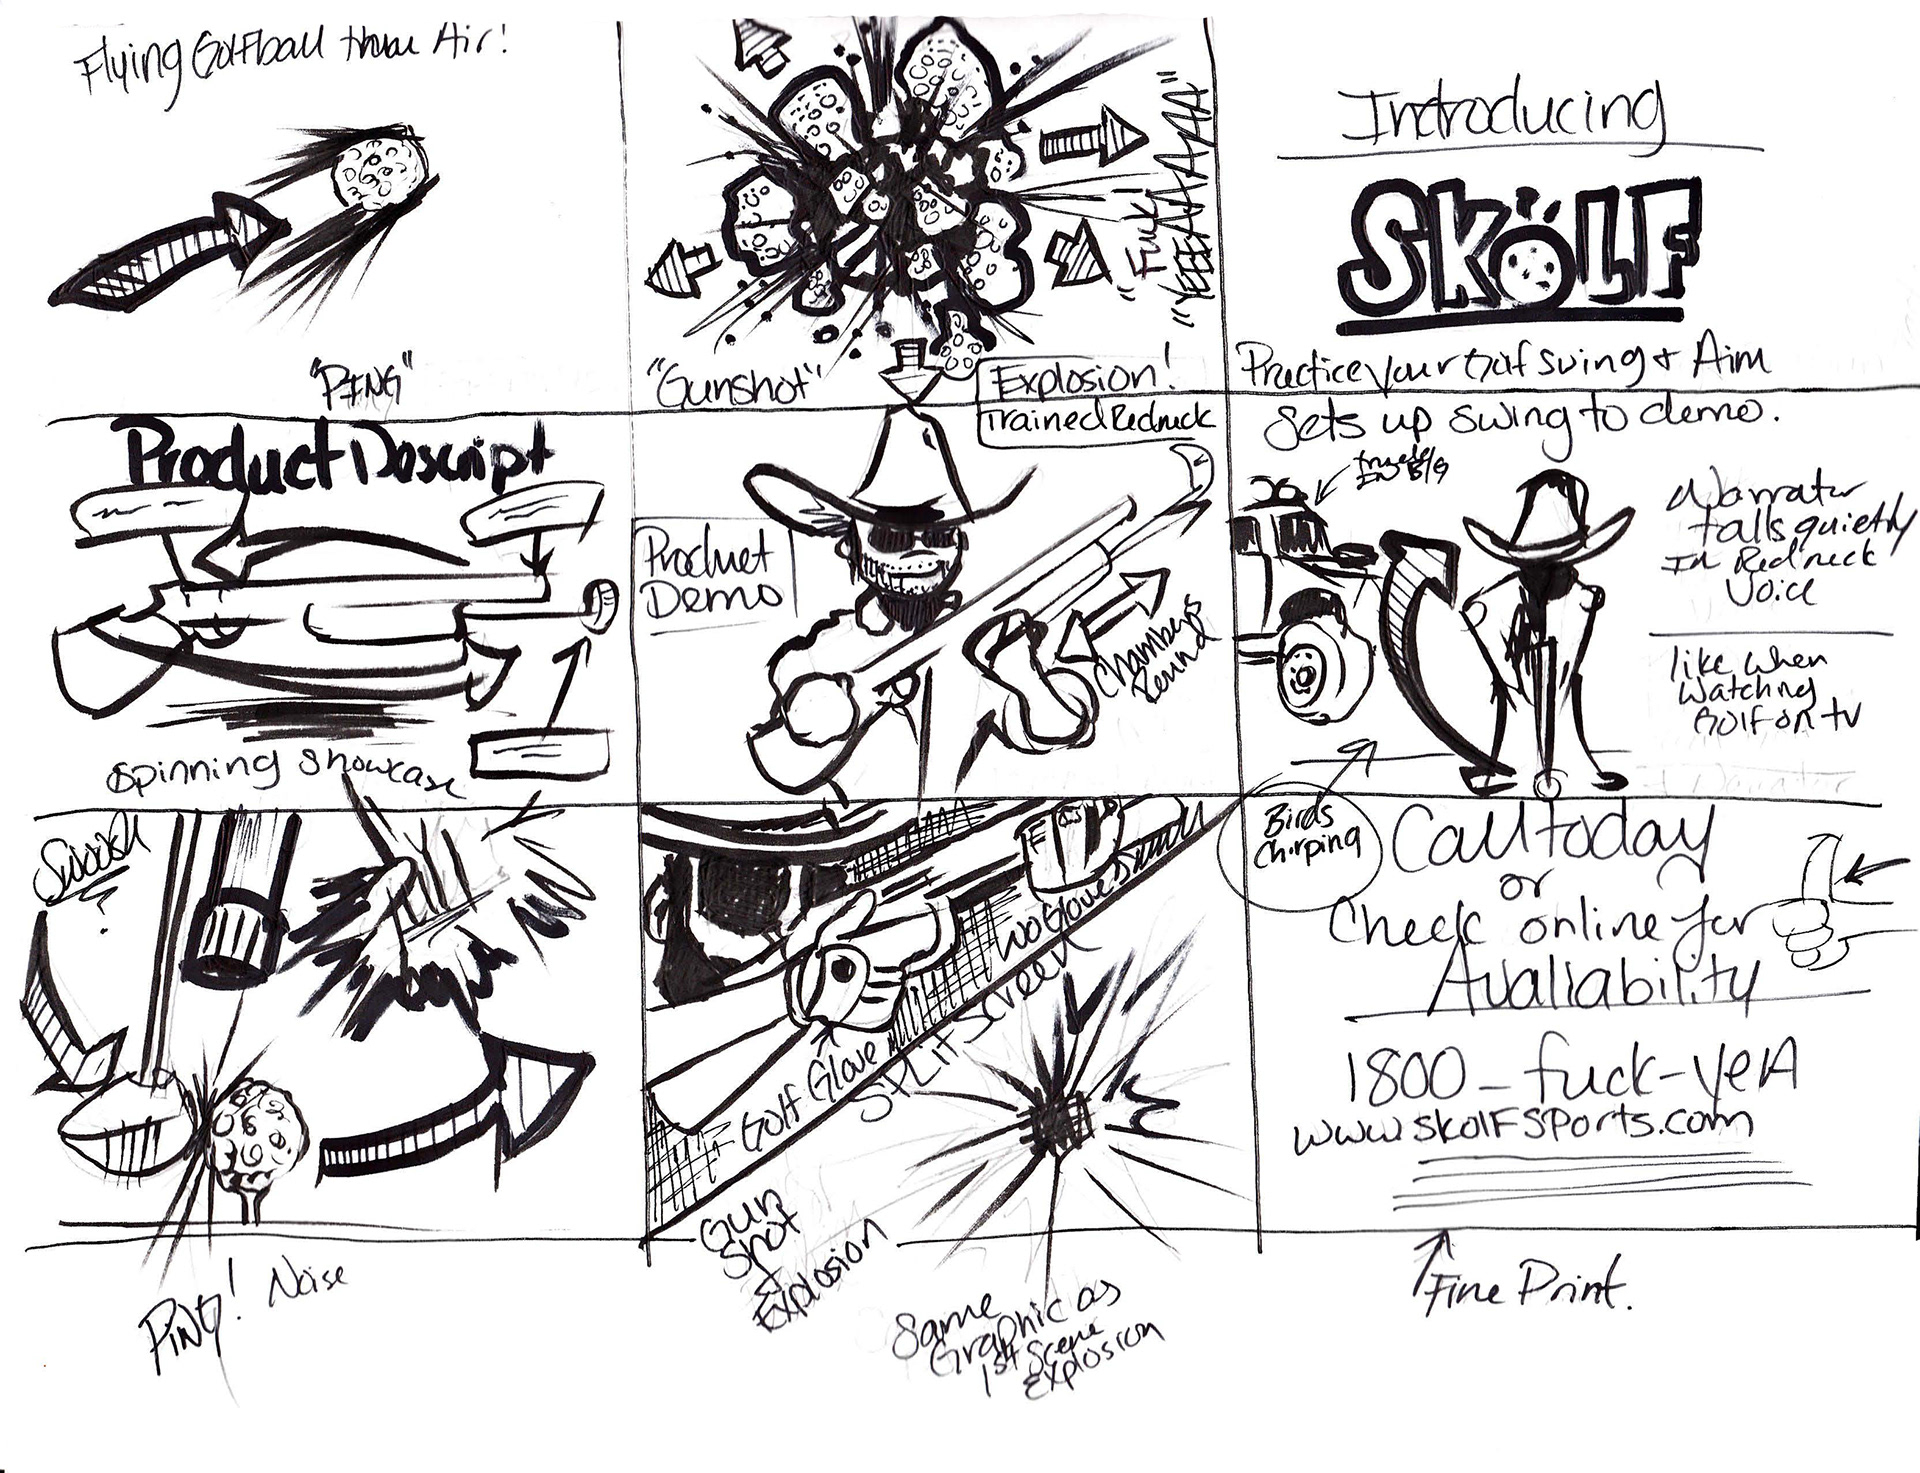 Flying Golfball thru Air!
"PING"
"Fuck!
"YEEEAAAAA"
"Gunshot"
Explosion!
Introducing
SKOLF
Practice your Golf Swing & Aim
Product Descript
Spinning Showcase
Trained Redneck
Product
Demo
Chambers
Round
Sets up swing to demo.
truck
IN B/G
Narrator
talls quietly
In Redneck
Voice
like when
Watching
Golf on tv
Birds
Chirping
Swoosh
PING! Noise
Golf Glove
SPLIT SCREEN
Gun
Shot
&
Explosion
Same
Graphic as
1st Scene
Explosion
Call today
or
Check online for
Avaliability
1800-fuck-yeA
www.skolfsports.com
Fine Print.